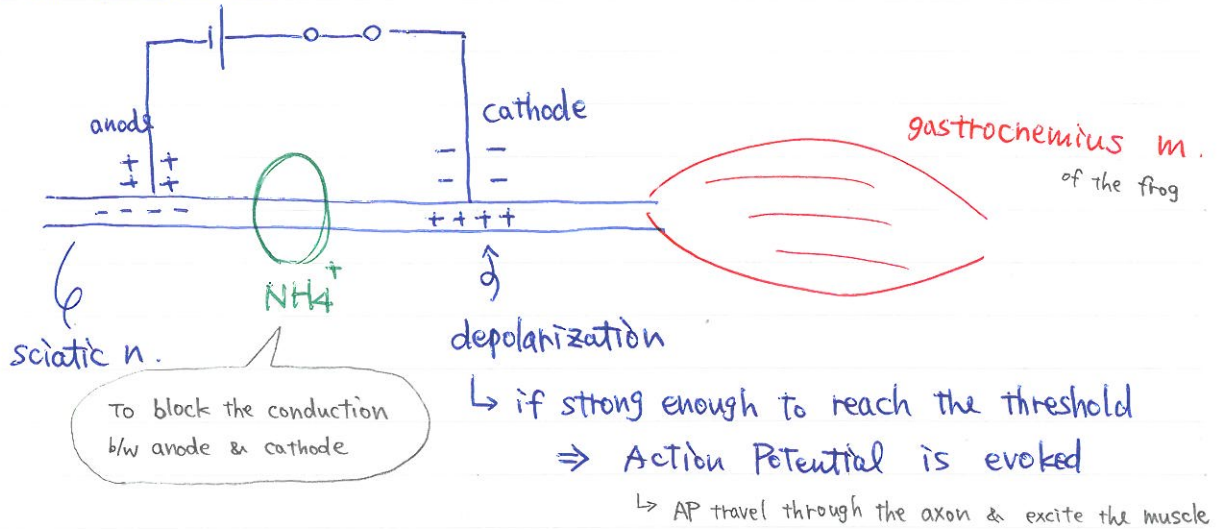 anode
cathode
+ +
+ +
- -
- -
- - - -
+ + + +
gastrochemius m.
of the frog
NH4+
sciatic n.
depolarization
To block the conduction
b/w anode & cathode
↳ if strong enough to reach the threshold
⇒ Action Potential is evoked
↳ AP travel through the axon & excite the muscle